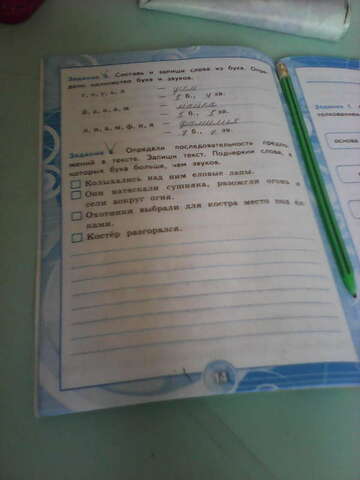 Задание 3. Составь и запиши слова из букв. Опре-
дели количество букв и звуков.
5 б., 4 зв.
— майка
5 б., 5 зв.
— фамилия
7 б., зв.
Задание Определи последовательность предло-
жений в тексте. Запиши текст. Подчеркни слова, в
которых букв больше, чем звуков.
Колыхались над ним еловые лапы.
Они натаскали сушняка, разожгли огонь и
сели вокруг огня.
Охотники выбрали для костра место под ёл-
ками.
Костёр разгорался.
Задание
основа